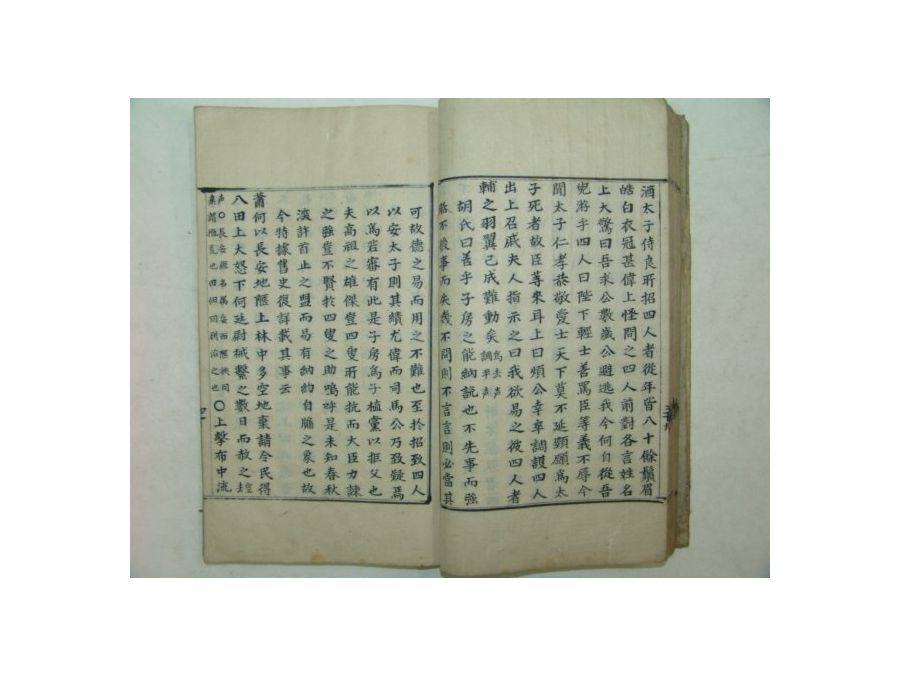 酒太子侍良所招四人者從年皆八十餘鬚眉
皓白衣冠甚偉上怪問之四人前對各言姓名
上大驚曰吾求公數歲公避逃我今何自從吾
兒游乎四人曰陛下輕士善罵臣等義不辱今
聞太子仁孝恭敬愛士天下莫不延頸願爲太
子死者故臣等來耳上曰煩公幸卒調護四人
出上召戚夫人指示之曰我欲易之彼四人者
輔之羽翼已成難動矣 爲去声 調平声
胡氏曰善乎子房之能納說也不先事而強
聒不後事而失幾不問則不言言則必當其
可故德之易而用之不難也至於招致四人
以安太子則其績尤偉而司馬公乃致疑焉
以爲若審有此是子房爲子植黨以拒父也
夫高祖之雄傑豈四叟所能抗而大臣力諫
之強豈不賢於四叟之助嗚呼是未知春秋
深許首止之盟而易有納約自牖之象也故
今特據舊史復詳載其事云
蕭何以長安地陿上林中多空地棄請令民得
入田上大怒下何廷尉械繫之數日而赦之
声○長安縣名屬安西陿狹同
○上擊布中流